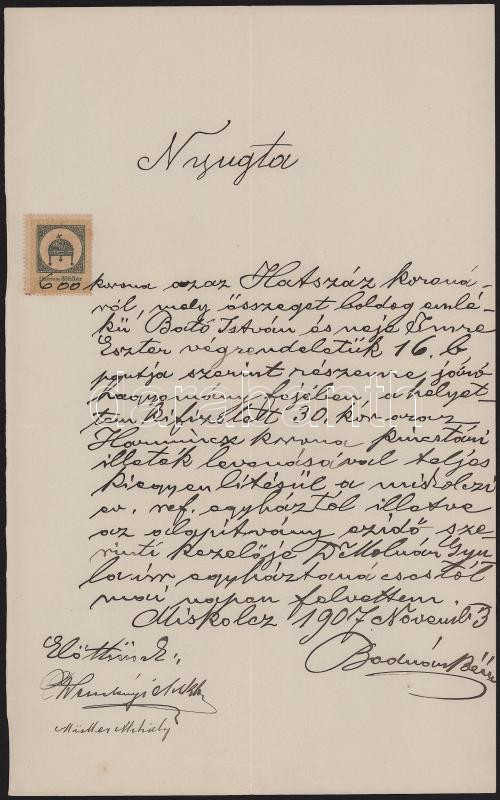 Nyugta
600 korona azaz Hatszáz koroná-
ról, mely összeget boldog emlé-
kü Bató István és neje Imre
Eszter végrendeletük 16. b
pontja szerint részemre járó
hagyomány fejében a helyet-
tem kifizetett 30 kor azaz
Harmincz korona kincstári
illeték levonásával teljes
kiegyenlítésül a miskolczi
ev. ref. egyháztól illetve
az alapítvány ezidő-sze-
rinti kezelője Dr Molnár Gyu-
la úr egyháztanácsostól
mai napon felvettem.
Miskolcz 1907 Novemb 3
Előttünk: Bodnár
Müller Mihály
darabanth